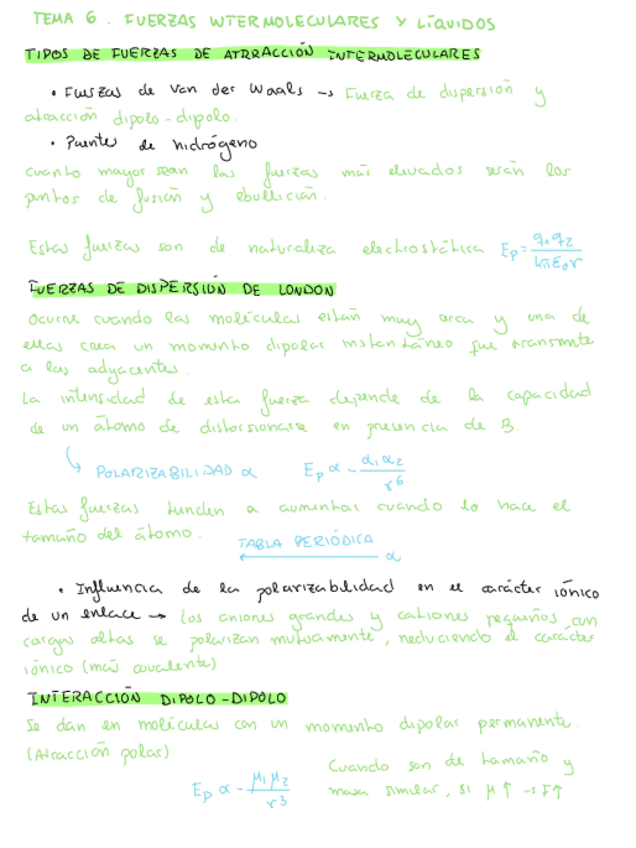 TEMA 6. FUERZAS INTERMOLECULARES Y LÍQUIDOS
TIPOS DE FUERZAS DE ATRRACCIÓN INTERMOLECULARES
• Fuerzas de Van der Waals → Fuerza de dispersión y
atracción dipolo-dipolo.
• Puentes de hidrógeno
Cuanto mayor sean las fuerzas más elevados serán los
puntos de fusión y ebullición.
Estas fuerzas son de naturaleza electrostática Ep = q₁q₂ / 4πε₀r
FUERZAS DE DISPERSIÓN DE LONDON
Ocurre cuando las moléculas están muy cerca y una de
ellas crea un momento dipolar instantáneo que transmite
a las adyacentes.
La intensidad de esta fuerza depende de la capacidad
de un átomo de distorsionarse en presencia de B.
↳ POLARIZABILIDAD α Ep α - α₁α₂ / r⁶
Estas fuerzas tienden a aumentar cuando lo hace el
tamaño del átomo.
TABLA PERIÓDICA
← α
• Influencia de la polarizabilidad en el carácter iónico
de un enlace → Los aniones grandes y cationes pequeños con
cargas altas se polarizan mutuamente, reduciendo el carácter
iónico (más covalente)
INTERACCIÓN DIPOLO-DIPOLO
Se dan en moléculas con un momento dipolar permanente.
(Atracción polar)
Ep α - μ₁μ₂ / r³
Cuando son de tamaño y
masa similar, si μ↑ → F↑